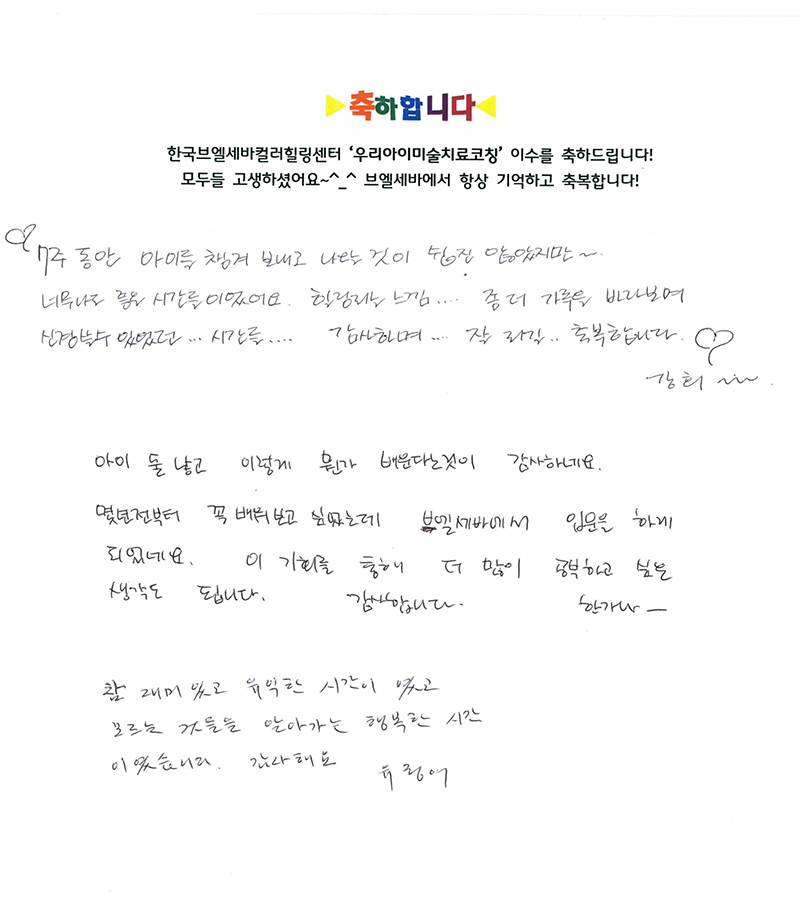 축하합니다
한국브엘세바컬러힐링센터 '우리아이미술치료코칭' 이수를 축하드립니다!
모두들 고생하셨어요~^_^ 브엘세바에서 항상 기억하고 축복합니다!
7주 동안 아이를 챙겨 보내고 나오는 것이 쉽진 않았지만~
너무나도 좋은 시간들이였어요. 힐링되는 느낌.... 좀 더 가족을 바라보며
신경쓸수 있었던... 시간들.... 감사하며....  축복합니다.
아이 둘 낳고 이렇게 뭔가 배운다는것이 감사하네요.
몇년전부터 꼭 배워보고 싶었는데 브엘세바에서 입문을 하게
되었네요. 이 기회를 통해 더 많이 공부하고 싶은
생각도 됩니다. 감사합니다. 한가나—
참 재미있고 유익한 시간이 였고
모르는 것들을 알아가는 행복한 시간
이였습니다. 감사해요